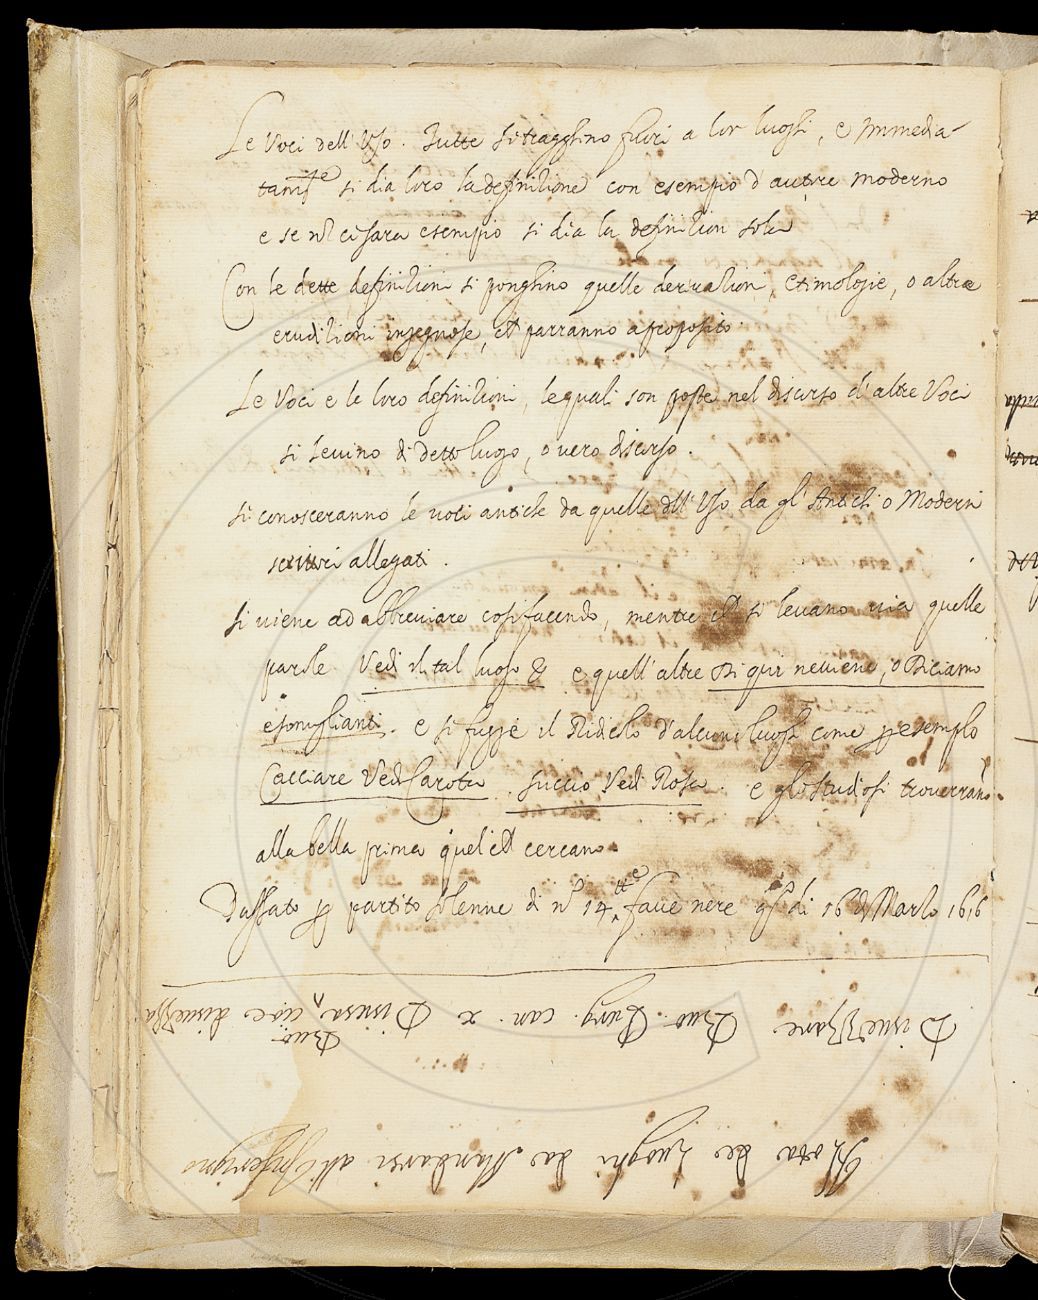 Le Voci dell'Uso. Tutte si tragghino fuori a lor luoghi, e Immedia-
tamte si dia loro la definitione con esempio d'autore moderno
e se nō ci sara esempio si dia la definition sola
Con le dette definitioni si ponghino quelle derivationi, etimologie, o altre
eruditioni ingegnose, che parranno a proposito
Le Voci e le loro definitioni, le quali son poste nel discorso d'altre Voci
si levino di detto luogo, o vero discorso.
Si conosceranno le voci antiche da quelle dll'Uso da gl'Antichi o Moderni
scrittori allegati.
Si viene ad abbreviare cosi facendo, mentre che si levano via quelle
parole Vedi il tal luogo & e quell'altre Di qui ne viene, o Diciamo
e somiglianti. e si fugge il Ridicolo d'alcuni luoghi come p esemplo
Cacciare Vedi Carota. Succio Vedi Rosa. e gli Studiosi troverranō
alla bella prima quel che cercano.
Passato p partito solenne di nº 14 tte fave nere qto dì 16 di Marzo 1616
Divezzare Buo. Purg. can. x Divisa, cioe divezza
Buo
Nota de Luoghi da Mandarsi all'Inferigno